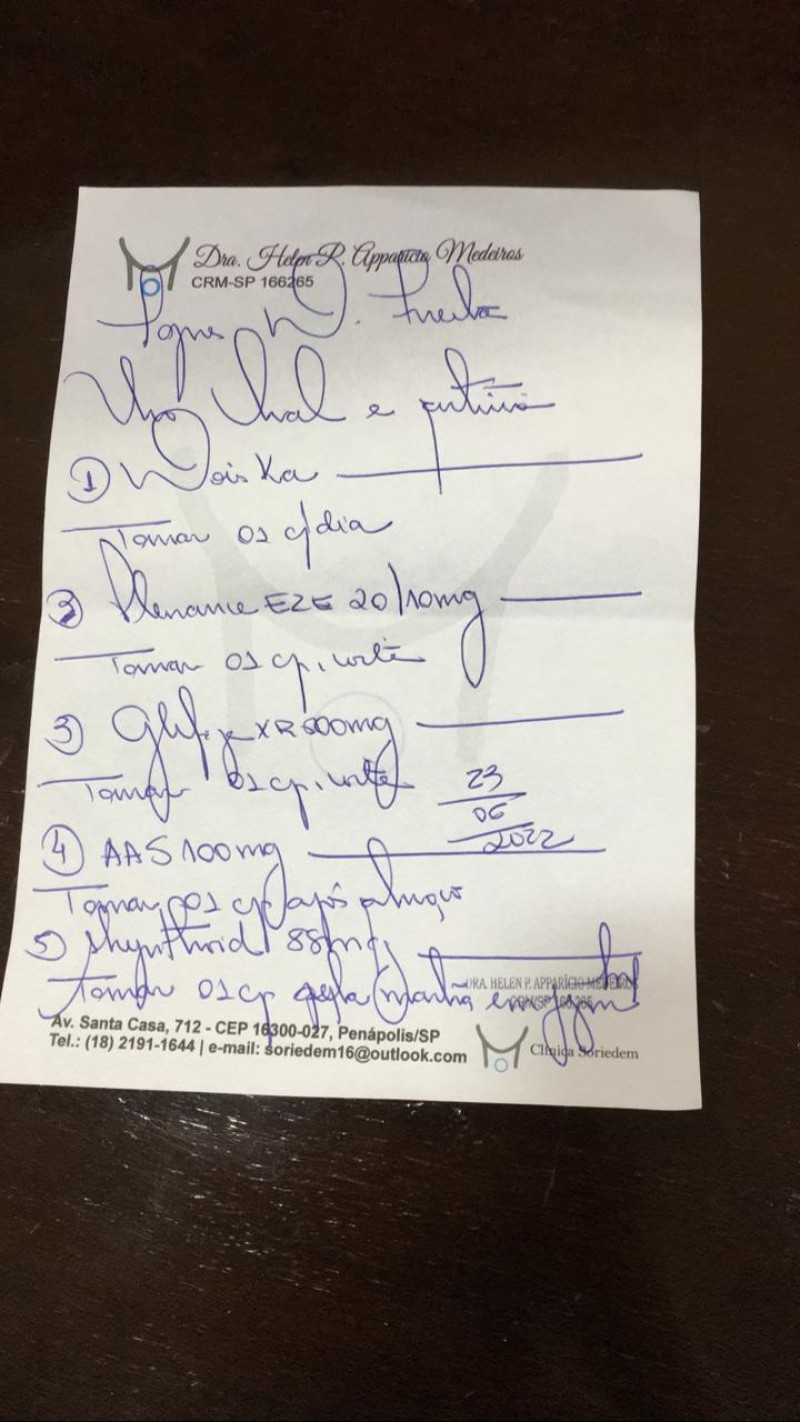 Dra. Helen R. Apparício Medeiros
CRM-SP 166265
Uso Oral e contínuo
① Noiska
Tomar 01 c/dia
② Plenance EZE 20/10mg
Tomar 01 cp, noite
3) Glifage XR 500mg
Tomar 01 cp, noite
23
06
2022
④ AAS 100mg
Tomar 01 cp após almoço
5) 88mg
Tomar 01 cp pela manhã em jejum
DRA. HELEN P. APPARÍCIO MEDEIROS
CRM/SP 166265
Av. Santa Casa, 712 - CEP 16300-027, Penápolis/SP
Tel.: (18) 2191-1644 | e-mail: soriedem16@outlook.com
Clínica Soriedem